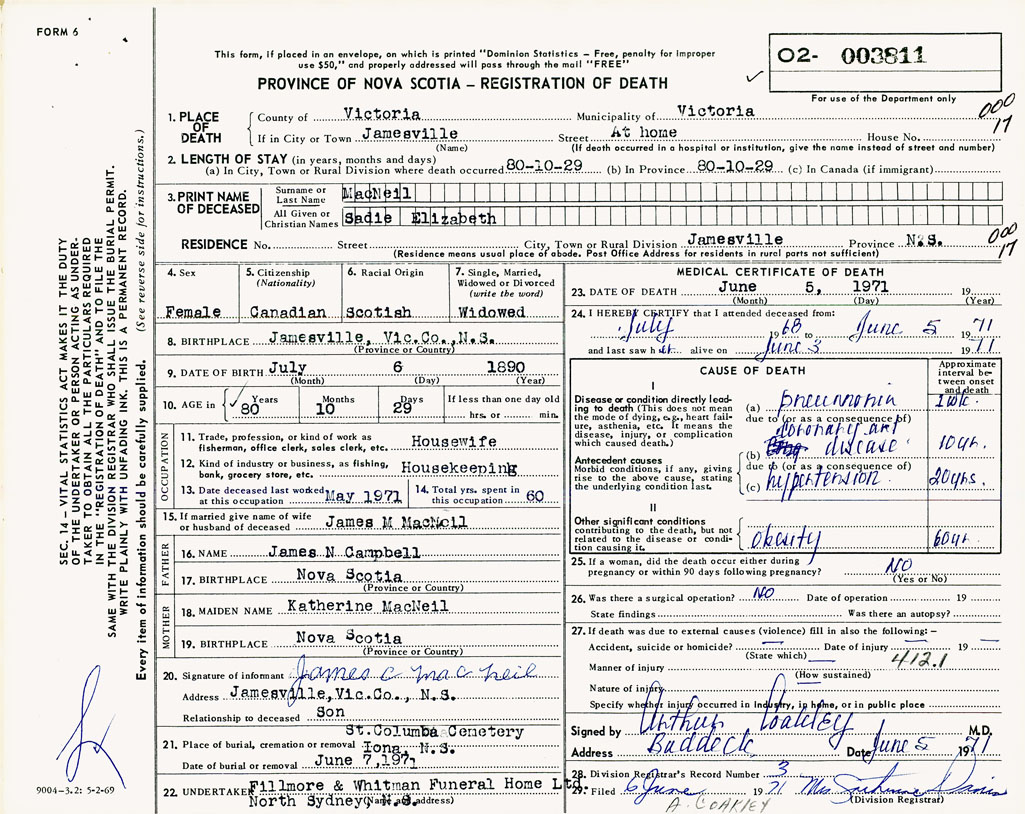 FORM 6
This form, if placed in an envelope, on which is printed "Dominion Statistics – Free, penalty for improper
use $50," and properly addressed will pass through the mail "FREE"
PROVINCE OF NOVA SCOTIA – REGISTRATION OF DEATH
02- 003811
For use of the Department only
000
17
1. PLACE OF DEATH
County of Victoria Municipality of Victoria
If in City or Town Jamesville Street At home House No.
(Name) (If death occurred in a hospital or institution, give the name instead of street and number)
2. LENGTH OF STAY (in years, months and days)
(a) In City, Town or Rural Division where death occurred 80-10-29 (b) In Province 80-10-29 (c) In Canada (if immigrant)
3. PRINT NAME OF DECEASED
Surname or Last Name MacNeil
All Given or Christian Names Sadie Elizabeth
RESIDENCE No. Street City, Town or Rural Division Jamesville Province N.S.
(Residence means usual place of abode. Post Office Address for residents in rural parts not sufficient)
000
17
4. Sex
Female
5. Citizenship
(Nationality)
Canadian
6. Racial Origin
Scotish
7. Single, Married,
Widowed or Divorced
(write the word)
Widowed
8. BIRTHPLACE Jamesville, Vic.Co.,N.S.
(Province or Country)
9. DATE OF BIRTH July 6 1890
(Month) (Day) (Year)
10. AGE in
Years
80
Months
10
Days
29
If less than one day old
hrs. or min.
OCCUPATION
11. Trade, profession, or kind of work as
fisherman, office clerk, sales clerk, etc. Housewife
12. Kind of industry or business, as fishing,
bank, grocery store, etc. Housekeeping
13. Date deceased last worked
at this occupation May 1971
14. Total yrs. spent in
this occupation 60
15. If married give name of wife
or husband of deceased James M MacNeil
FATHER
16. NAME James N Campbell
17. BIRTHPLACE Nova Scotia
(Province or Country)
MOTHER
18. MAIDEN NAME Katherine MacNeil
19. BIRTHPLACE Nova Scotia
(Province or Country)
20. Signature of informant James C MacNeil
Address Jamesville, Vic.Co., N.S.
Relationship to deceased Son
St.Columba Cemetery
21. Place of burial, cremation or removal Iona, N.S.
Date of burial or removal June 7,1971
22. UNDERTAKER Fillmore & Whitman Funeral Home Ltd.
North Sydney, N.S.
(Name and address)
MEDICAL CERTIFICATE OF DEATH
23. DATE OF DEATH June 5, 1971 19
(Month) (Day) (Year)
24. I HEREBY CERTIFY that I attended deceased from:
July 1968 to June 5 1971
and last saw her alive on June 3 1971
CAUSE OF DEATH
Approximate interval between onset and death
I
Disease or condition directly leading to death (This does not mean the mode of dying, e.g., heart failure, asthenia, etc. It means the disease, injury, or complication which caused death.)
(a) pneumonia 1 wk.
due to (or as a consequence of)
coronary art
(b) disease 10 yr.
Antecedent causes
Morbid conditions, if any, giving rise to the above cause, stating the underlying condition last.
due to (or as a consequence of)
(c) hypertension 20 yrs.
II
Other significant conditions contributing to the death, but not related to the disease or condition causing it.
obesity 60 yr.
25. If a woman, did the death occur either during
pregnancy or within 90 days following pregnancy? NO
(Yes or No)
26. Was there a surgical operation? NO Date of operation 19
State findings Was there an autopsy?
27. If death was due to external causes (violence) fill in also the following: –
Accident, suicide or homicide? Date of injury 19
(State which)
412.1
Manner of injury
(How sustained)
Nature of injury
Specify whether injury occurred in Industry, in home, or in public place
Signed by Arthur Coakley M.D.
Address Baddeck Date June 5 1971
28. Division Registrar's Record Number 3
29. Filed 6 June 1971 Mrs Davis
(Division Registrar)
A. COAKLEY
SEC. 14 – VITAL STATISTICS ACT MAKES IT THE DUTY
OF THE UNDERTAKER OR PERSON ACTING AS UNDER-
TAKER TO OBTAIN ALL THE PARTICULARS REQUIRED
IN THE "REGISTRATION OF DEATH" AND TO FILE THE
SAME WITH THE DIVISION REGISTRAR WHO SHALL ISSUE THE BURIAL PERMIT.
WRITE PLAINLY WITH UNFADING INK. THIS IS A PERMANENT RECORD.
Every item of information should be carefully supplied. (See reverse side for instructions.)
9004-3.2: 5-2-69